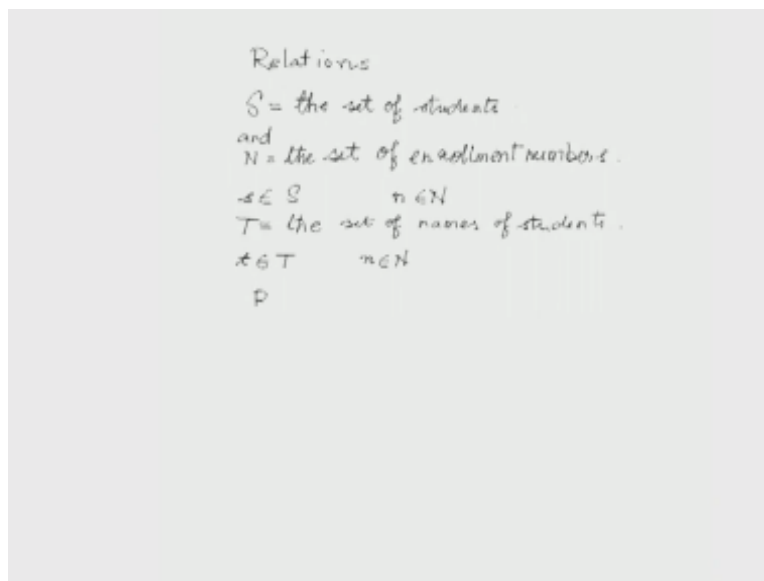 Relations
S = the set of students
and
N = the set of enrollment numbers.
s ∈ S n ∈ N
T = the set of names of students.
t ∈ T n ∈ N
P